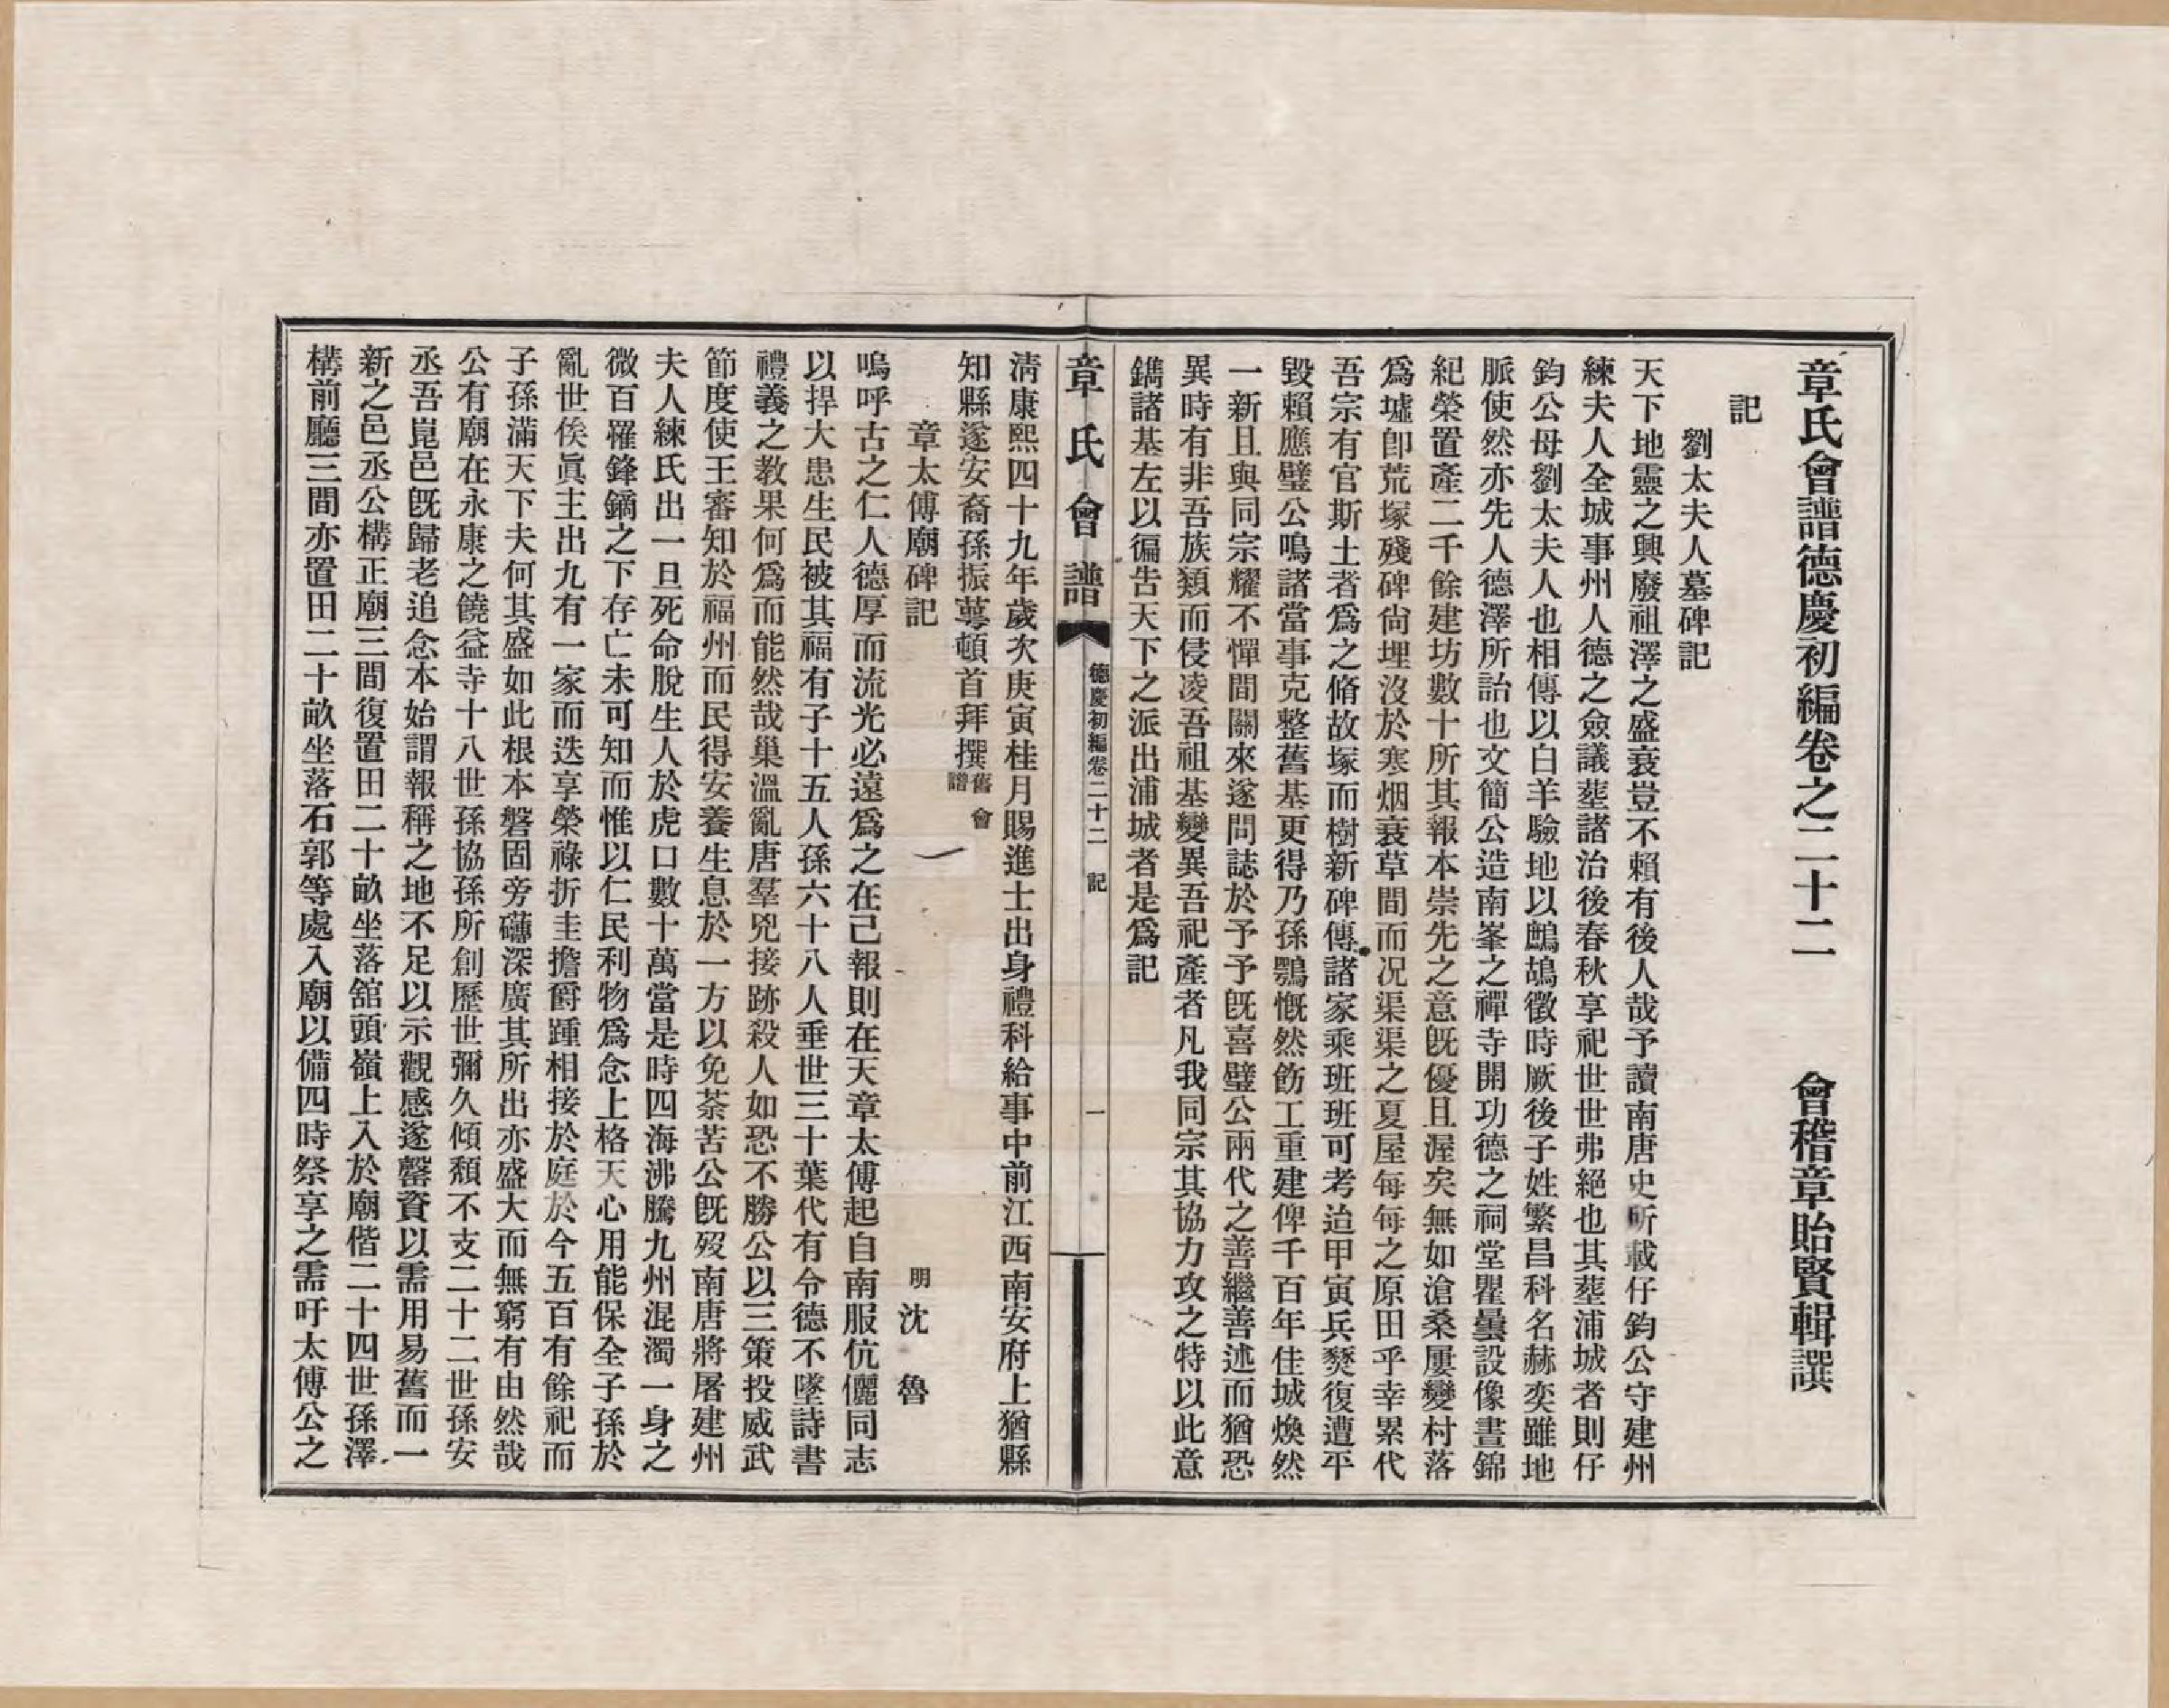 章氏會譜德慶初編卷之二十二　　會稽章貽賢輯譔
記
劉太夫人墓碑記
天下地靈之興廢祖澤之盛衰豈不賴有後人哉予讀南唐史所載仔鈞公守建州
練夫人全城事州人德之僉議塟諸治後春秋享祀世世弗絕也其塟浦城者則仔
鈞公母劉太夫人也相傳以白羊驗地以鷓鴣徵時厥後子姓繁昌科名赫奕雖地
脈使然亦先人德澤所詒也文簡公造南峯之禪寺開功德之祠堂瞿曇設像晝錦
紀榮置產二千餘建坊數十所其報本崇先之意旣優且渥矣無如滄桑屢變村落
爲墟卽荒塚殘碑尙埋沒於寒烟衰草間而况渠渠之夏屋每每之原田乎幸累代
吾宗有官斯土者爲之脩故塚而樹新碑傳諸家乘班班可考迨甲寅兵燹復遭平
毀賴應璧公鳴諸當事克整舊基更得乃孫鶚慨然飭工重建俾千百年佳城煥然
一新且與同宗耀不憚間關來遂問誌於予予旣喜璧公兩代之善繼善述而猶恐
異時有非吾族類而侵凌吾祖基變異吾祀產者凡我同宗其協力攻之特以此意
鐫諸基左以徧吿天下之派出浦城者是爲記
章氏會譜　德慶初編卷二十二　記　一
淸康熙四十九年歲次庚寅桂月賜進士出身禮科給事中前江西南安府上猶縣
知縣遂安裔孫振蕚頓首拜撰舊會譜
章太傅廟碑記　　明沈　魯
嗚呼古之仁人德厚而流光必遠爲之在己報則在天章太傅起自南服伉儷同志
以捍大患生民被其福有子十五人孫六十八人垂世三十葉代有令德不墜詩書
禮義之教果何爲而能然哉巢溫亂唐羣兇接跡殺人如恐不勝公以三策投威武
節度使王審知於福州而民得安養生息於一方以免荼苦公旣歿南唐將屠建州
夫人練氏出一旦死命脫生人於虎口數十萬當是時四海沸騰九州混濁一身之
微百罹鋒鏑之下存亡未可知而惟以仁民利物爲念上格天心用能保全子孫於
亂世俟眞主出九有一家而迭享榮祿折圭擔爵踵相接於庭於今五百有餘祀而
子孫滿天下夫何其盛如此根本磐固旁礴深廣其所出亦盛大而無窮有由然哉
公有廟在永康之饒益寺十八世孫協孫所創歷世彌久傾頹不支二十二世孫安
丞吾崑邑旣歸老追念本始謂報稱之地不足以示觀感遂罄資以需用易舊而一
新之邑丞公構正廟三間復置田二十畝坐落舘頭嶺上入於廟偕二十四世孫澤
構前廳三間亦置田二十畝坐落石郭等處入廟以備四時祭享之需吁太傅公之